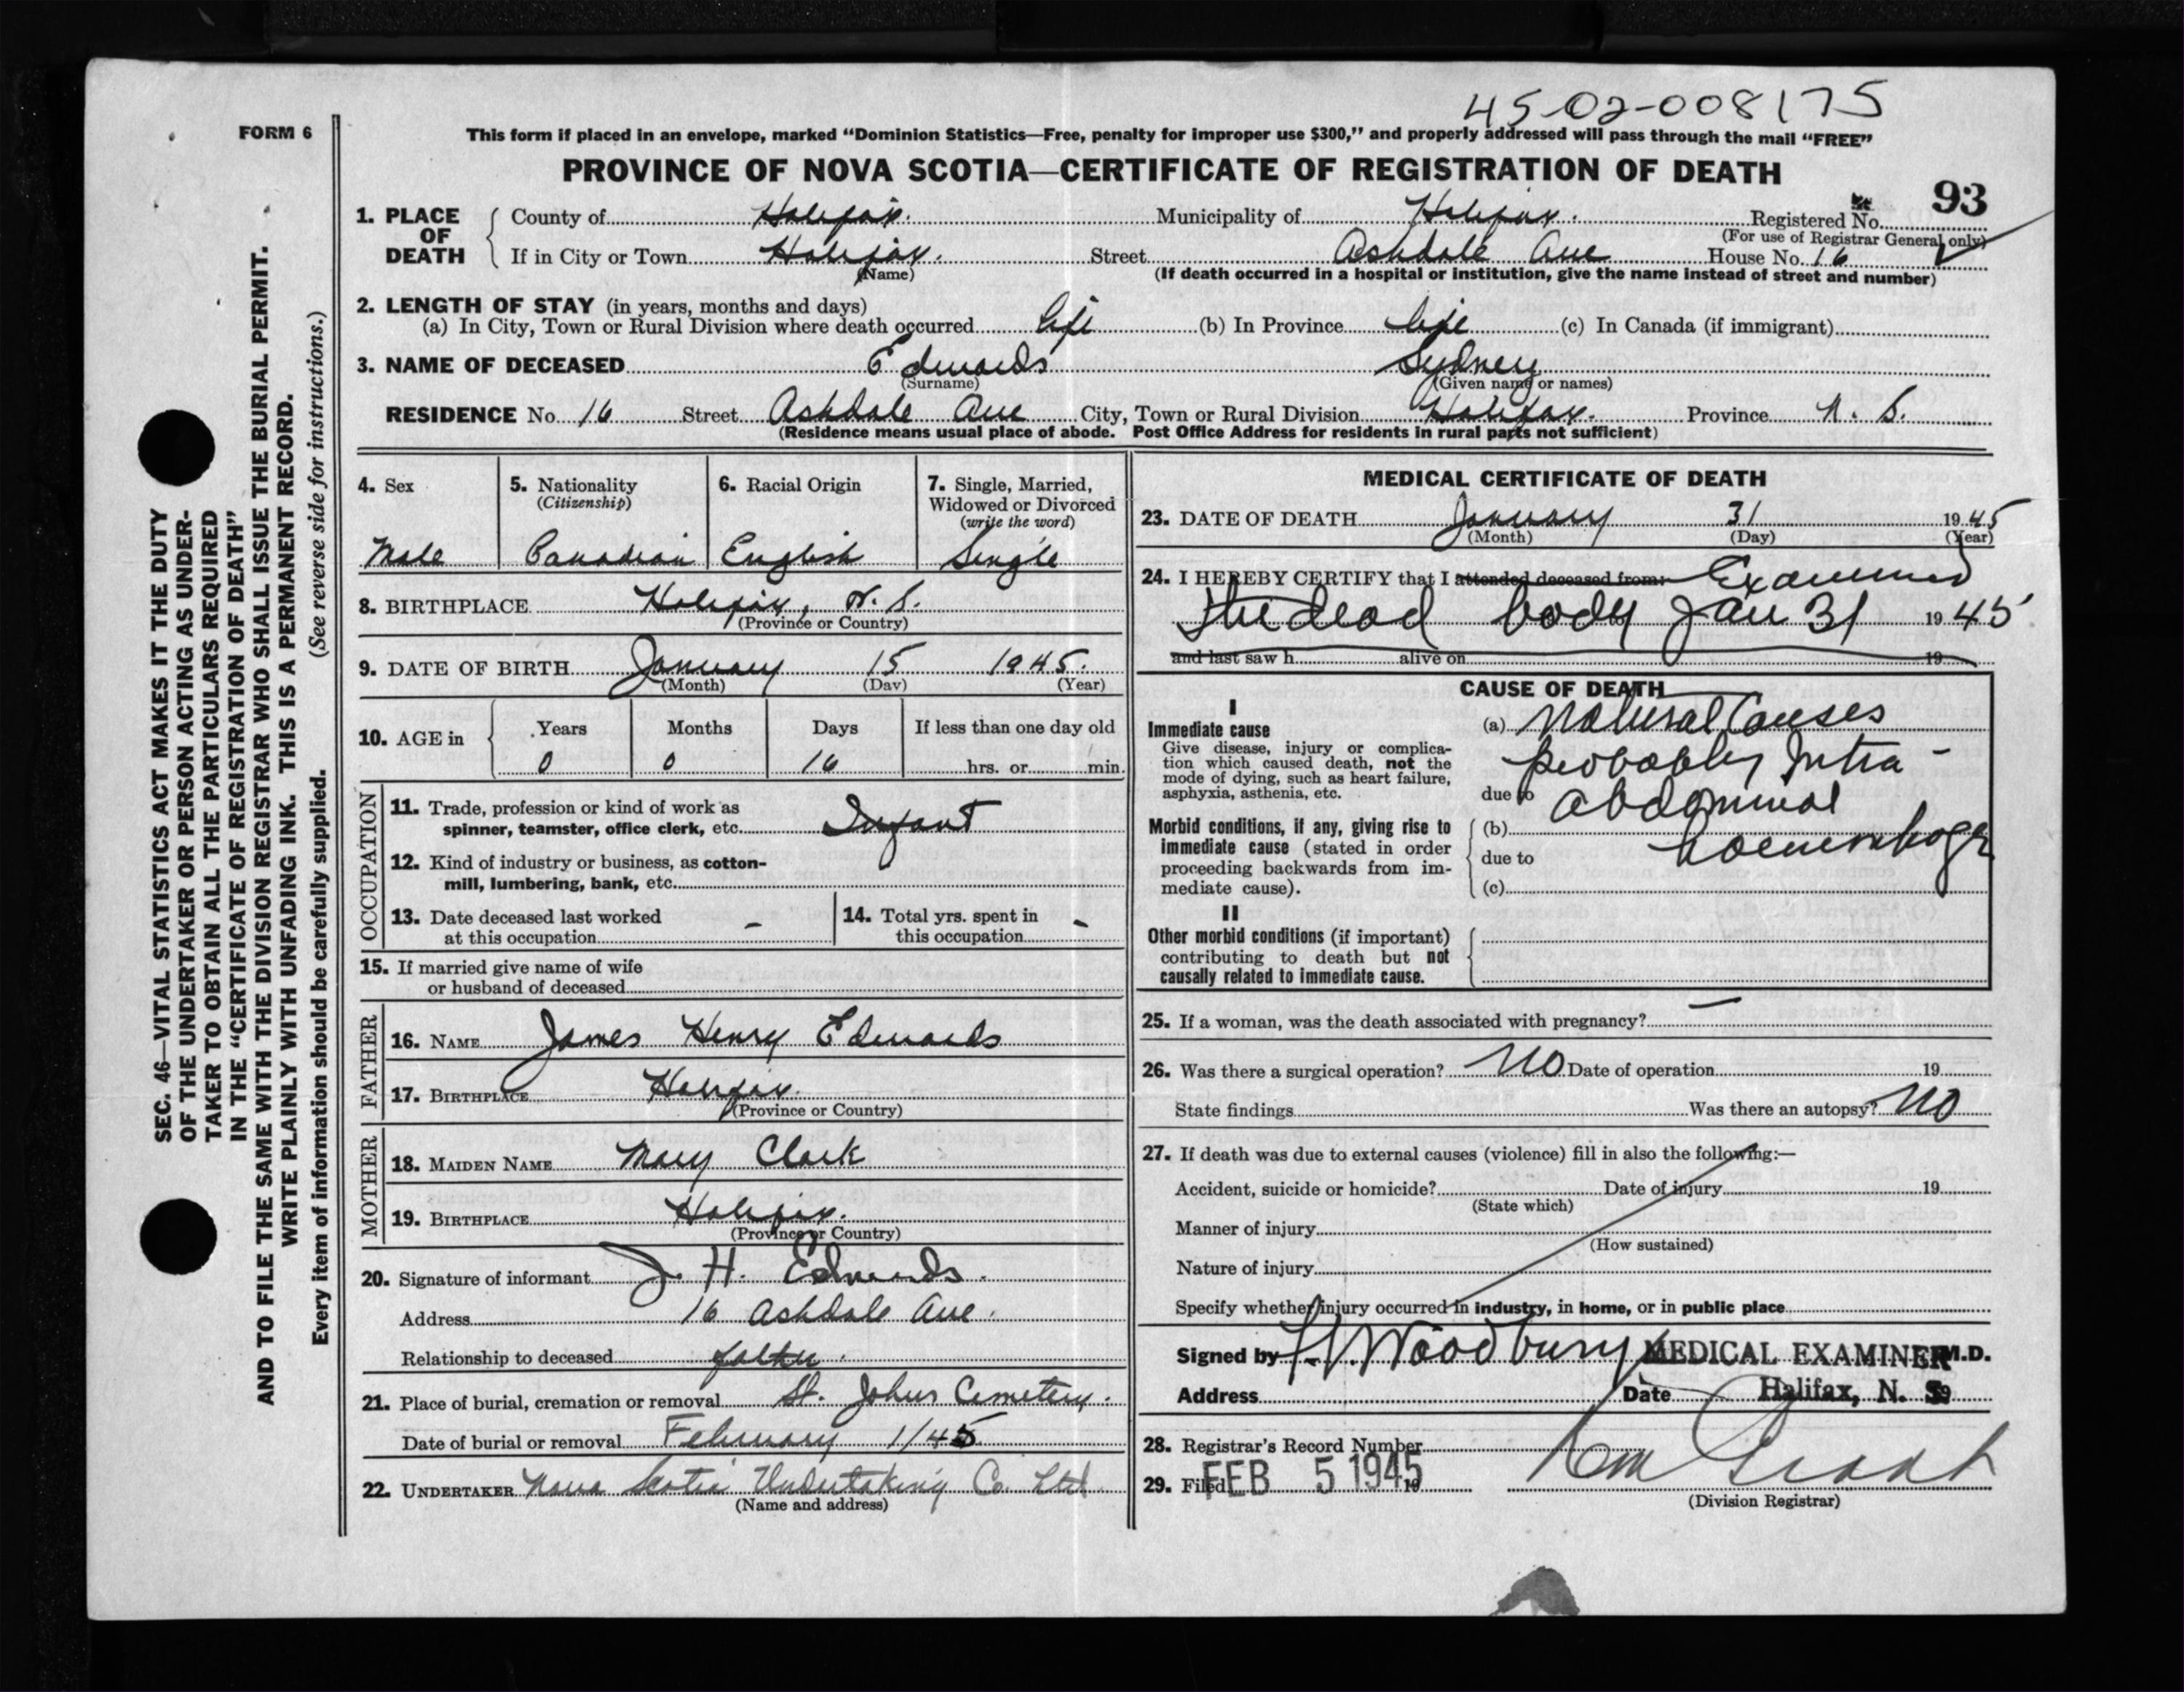 45-02-008175
FORM 6
This form if placed in an envelope, marked "Dominion Statistics—Free, penalty for improper use $300," and properly addressed will pass through the mail "FREE"
PROVINCE OF NOVA SCOTIA—CERTIFICATE OF REGISTRATION OF DEATH
93
1. PLACE OF DEATH
County of Halifax. Municipality of Halifax. Registered No.
(For use of Registrar General only)
If in City or Town Halifax. Street Ashdale Ave House No. 16
(Name) (If death occurred in a hospital or institution, give the name instead of street and number)
2. LENGTH OF STAY (in years, months and days)
(a) In City, Town or Rural Division where death occurred life (b) In Province life (c) In Canada (if immigrant)
3. NAME OF DECEASED Edwards Sydney
(Surname) (Given name or names)
RESIDENCE No. 16 Street Ashdale Ave City, Town or Rural Division Halifax. Province N. S.
(Residence means usual place of abode. Post Office Address for residents in rural parts not sufficient)
4. Sex
Male
5. Nationality
(Citizenship)
Canadian
6. Racial Origin
English
7. Single, Married,
Widowed or Divorced
(write the word)
Single
8. BIRTHPLACE Halifax, N. S.
(Province or Country)
9. DATE OF BIRTH January 15 1945.
(Month) (Day) (Year)
10. AGE in
Years Months Days If less than one day old
0 0 16 hrs. or min.
OCCUPATION
11. Trade, profession or kind of work as
spinner, teamster, office clerk, etc. Infant
12. Kind of industry or business, as cotton-
mill, lumbering, bank, etc.
13. Date deceased last worked
at this occupation –
14. Total yrs. spent in
this occupation –
15. If married give name of wife
or husband of deceased
FATHER
16. NAME James Henry Edwards
17. BIRTHPLACE Halifax.
(Province or Country)
MOTHER
18. MAIDEN NAME Mary Clark
19. BIRTHPLACE Halifax.
(Province or Country)
20. Signature of informant J. H. Edwards.
Address 16 Ashdale Ave.
Relationship to deceased father.
21. Place of burial, cremation or removal St. Johns Cemetery.
Date of burial or removal February 1/45
22. UNDERTAKER Nova Scotia Undertaking Co. Ltd.
(Name and address)
MEDICAL CERTIFICATE OF DEATH
23. DATE OF DEATH January 31 1945
(Month) (Day) (Year)
24. I HEREBY CERTIFY that I attended deceased from: Examined
the dead body Jan 31 1945
and last saw h alive on 19
CAUSE OF DEATH
I
Immediate cause
Give disease, injury or complica-
tion which caused death, not the
mode of dying, such as heart failure,
asphyxia, asthenia, etc.
(a) Natural Causes
probably Intra-
due to abdominal
Morbid conditions, if any, giving rise to
immediate cause (stated in order
proceeding backwards from im-
mediate cause).
(b)
due to haemorrhage
(c)
II
Other morbid conditions (if important)
contributing to death but not
causally related to immediate cause.
25. If a woman, was the death associated with pregnancy? –
26. Was there a surgical operation? NO Date of operation 19
State findings Was there an autopsy? NO
27. If death was due to external causes (violence) fill in also the following:—
Accident, suicide or homicide? Date of injury 19
(State which)
Manner of injury
(How sustained)
Nature of injury
Specify whether injury occurred in industry, in home, or in public place
Signed by Woodbury MEDICAL EXAMINER M.D.
Address Date Halifax, N. S. 19
28. Registrar's Record Number
29. Filed FEB 5 1945 19
(Division Registrar)
SEC. 46—VITAL STATISTICS ACT MAKES IT THE DUTY
OF THE UNDERTAKER OR PERSON ACTING AS UNDER-
TAKER TO OBTAIN ALL THE PARTICULARS REQUIRED
IN THE "CERTIFICATE OF REGISTRATION OF DEATH"
AND TO FILE THE SAME WITH THE DIVISION REGISTRAR WHO SHALL ISSUE THE BURIAL PERMIT.
WRITE PLAINLY WITH UNFADING INK. THIS IS A PERMANENT RECORD.
Every item of information should be carefully supplied. (See reverse side for instructions.)